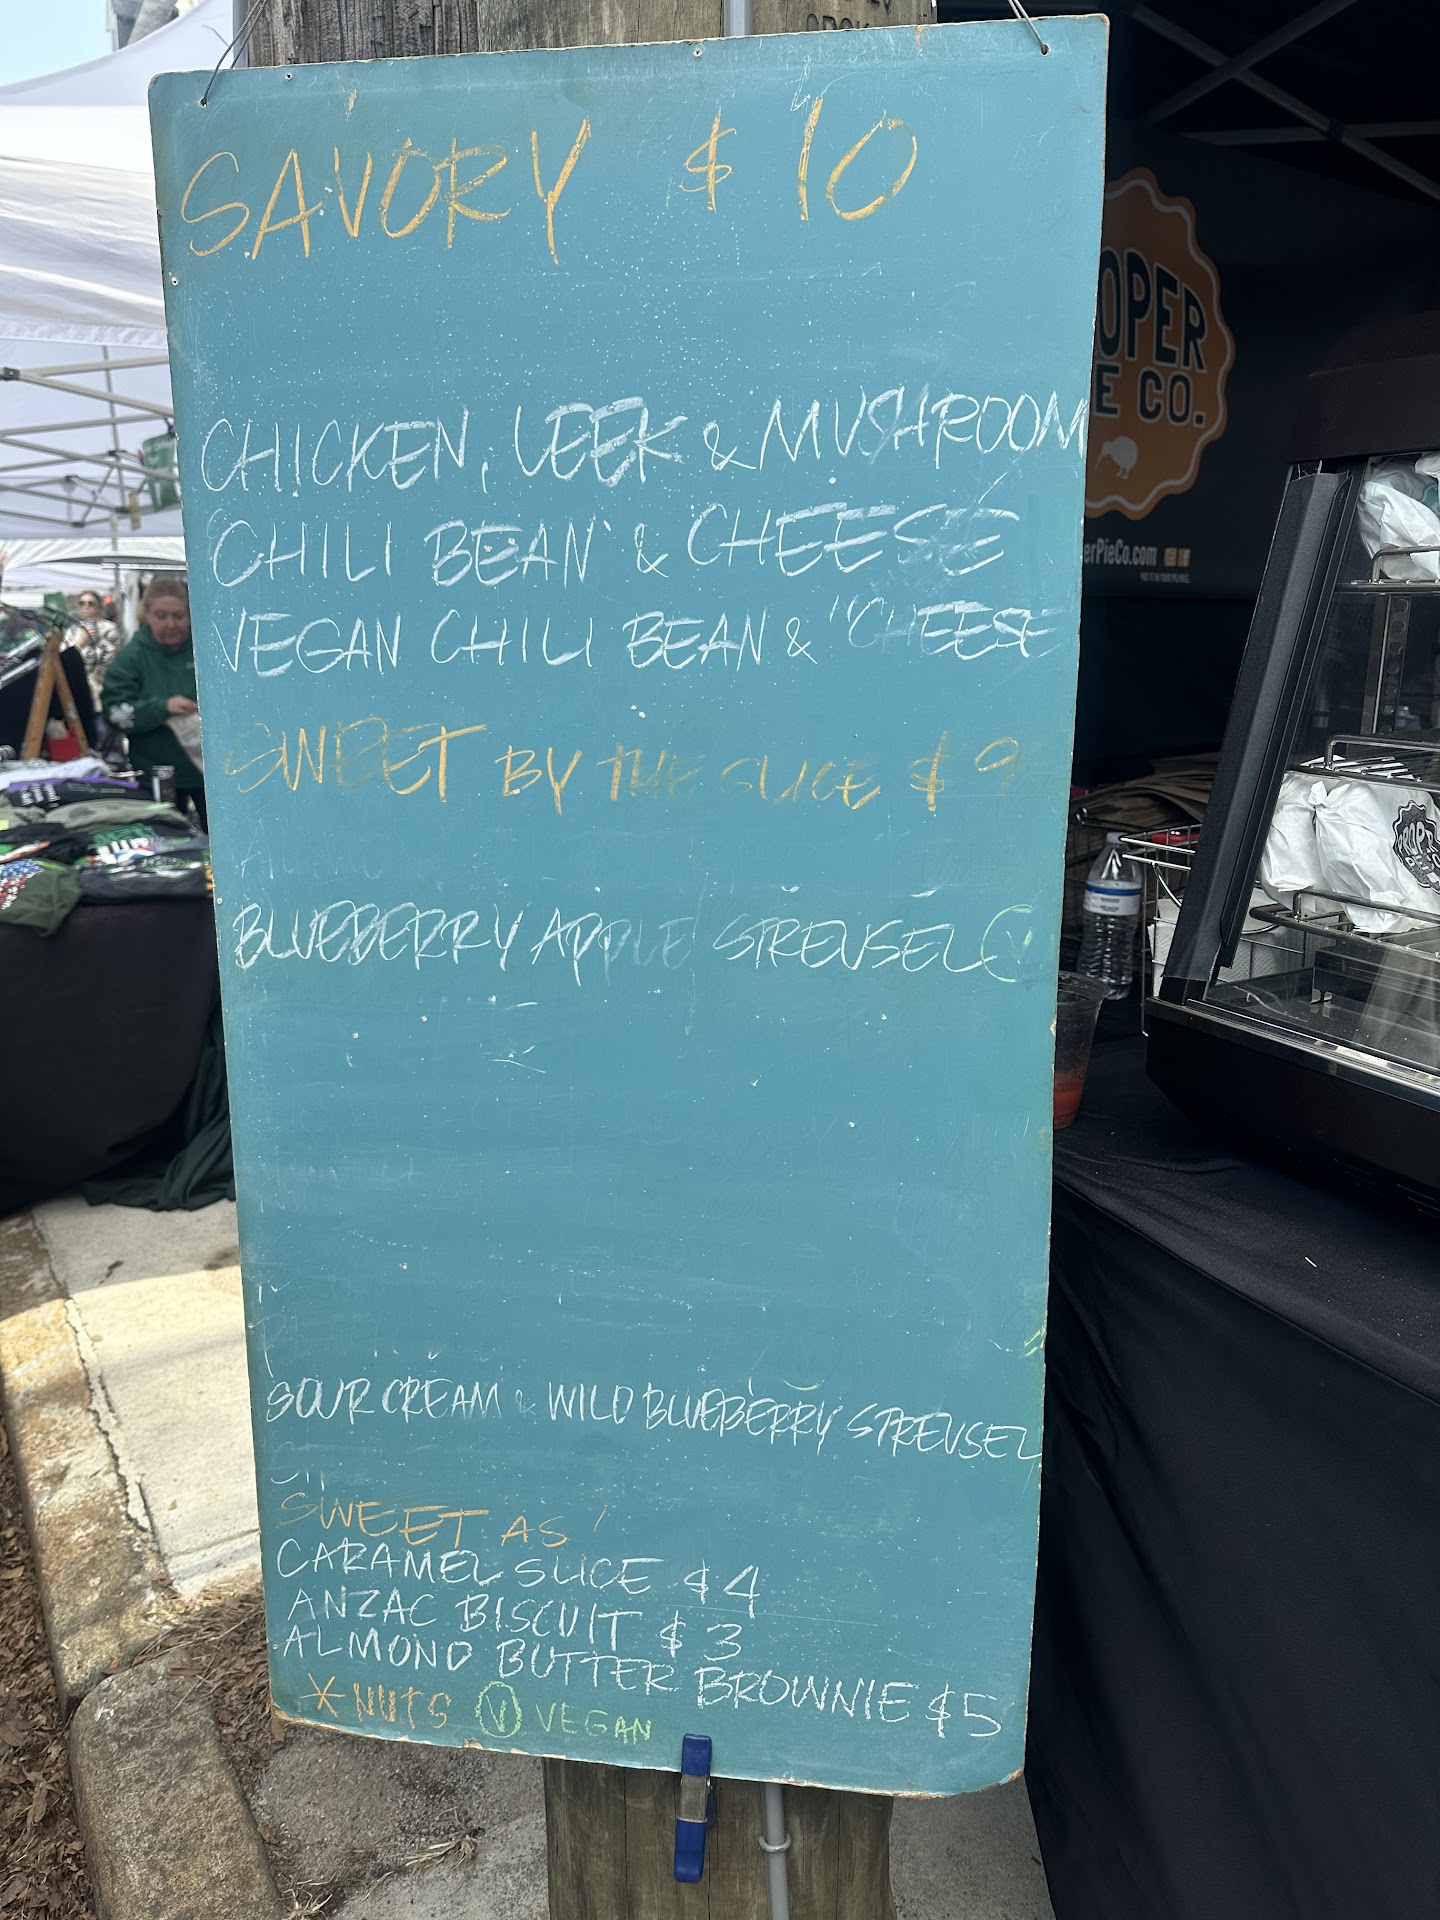 SAVORY $10
CHICKEN, LEEK & MUSHROOM
CHILI BEAN & CHEESE
VEGAN CHILI BEAN & "CHEESE
SWEET BY THE SLICE $9
BLUEBERRY APPLE STREUSEL V
SOUR CREAM & WILD BLUEBERRY STREUSEL
SWEET AS
CARAMEL SLICE $4
ANZAC BISCUIT $3
ALMOND BUTTER BROWNIE $5
* NUTS V VEGAN
OPER
E CO.
erPieCo.com